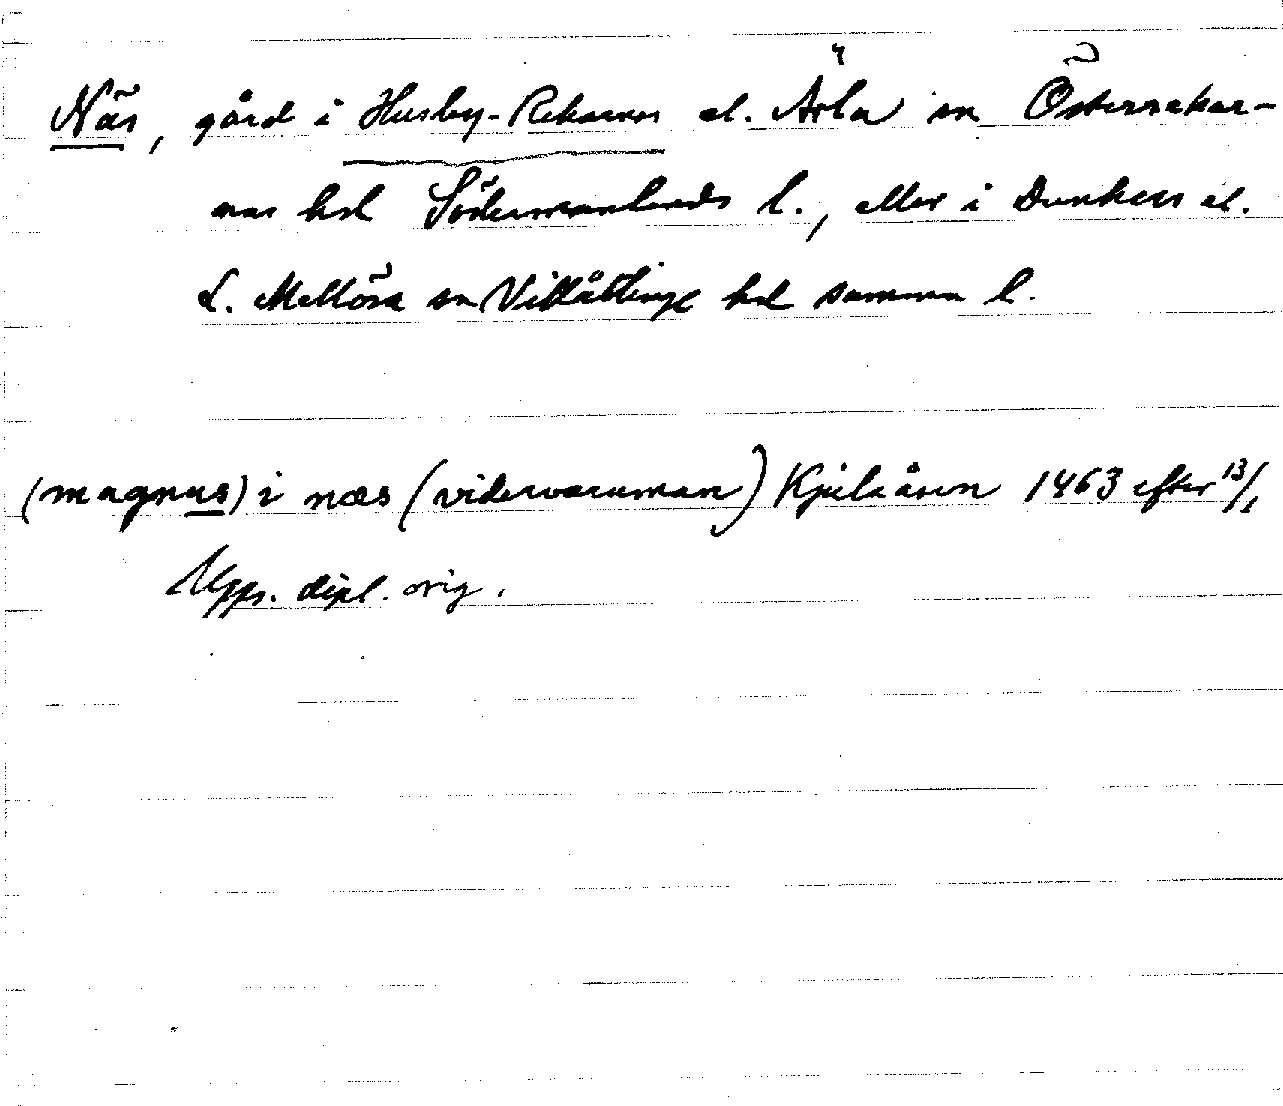 Näs, gård i Husby-Rekarnes el. Ärla sn Österrekar-
nas hd Södermanlands l., eller i Dunkers el.
L. Mellösa sn Villåttinge hd samma l.
(magnus) i næs (vidervaruman) Kjulaåsen 1463 efter 13/1
Upps. dipl. orig.